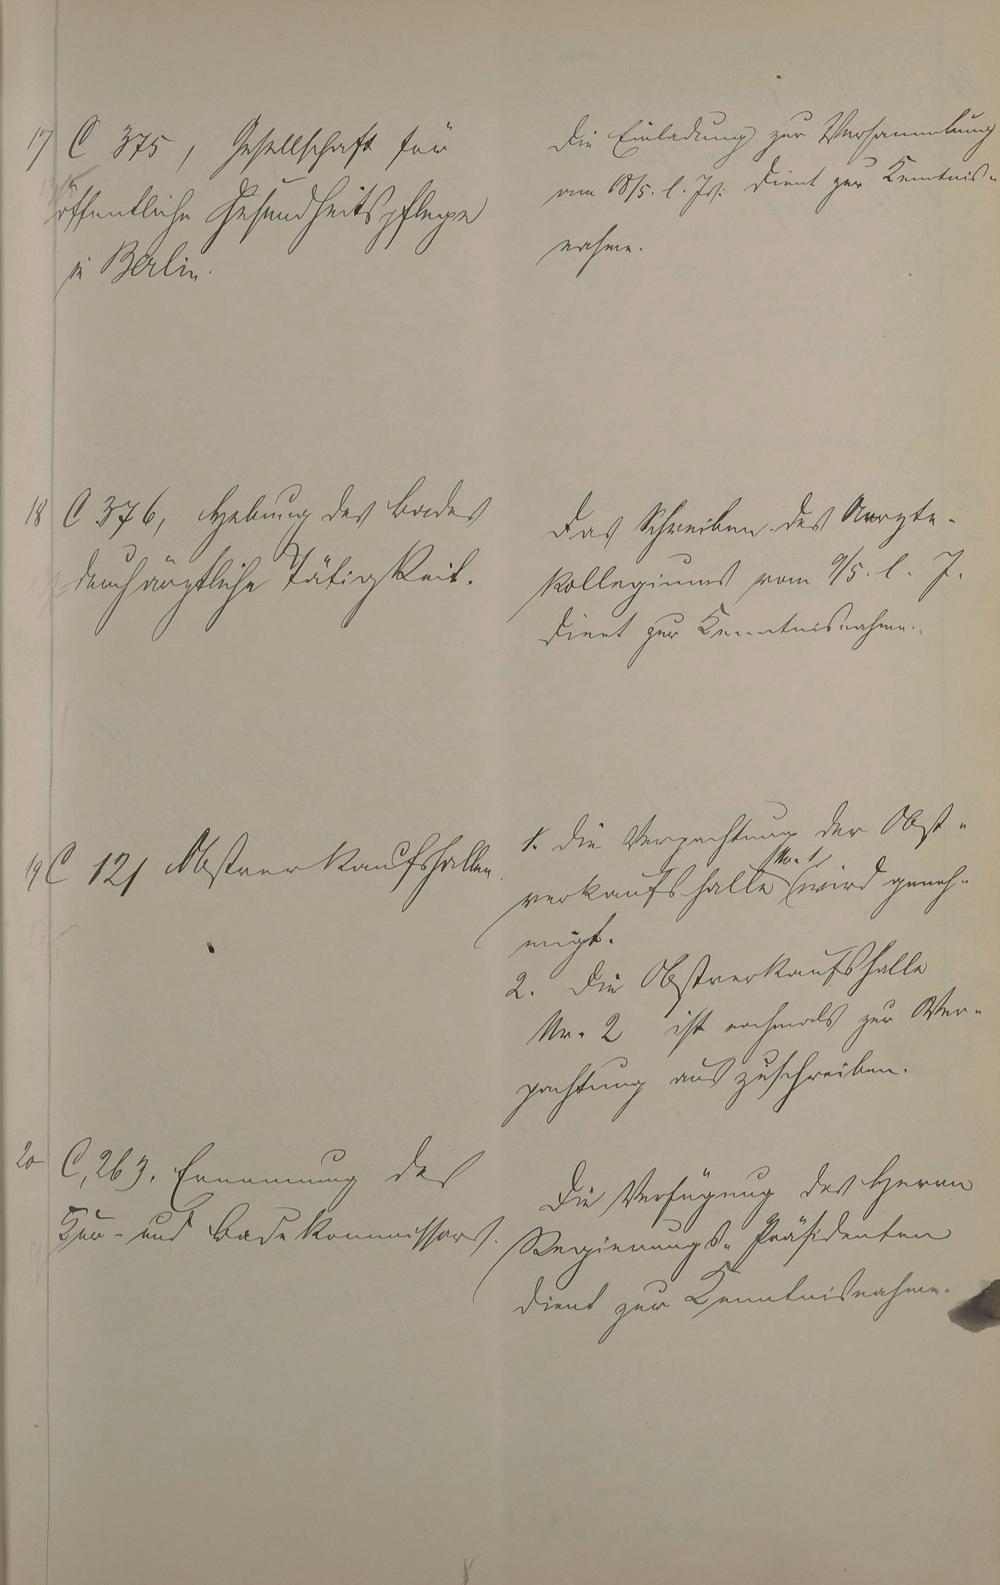 17 C 375, Gesellschaft für
öffentliche Gesundheitspflege
in Berlin.
Die Einladung zur Versammlung
vom 18/5. l. Js. dient zur Kenntnis-
nahme.
18 C 376, Hebung des Bades
durch ärztliche Tätigkeit.
Das Schreiben des Aerzte-
kollegiums vom 9/5. l. J.
dient zur Kenntnisnahme.
19 C 121 Obstverkaufshallen
1. Die Verpachtung der Obst-
verkaufshalle Nr. 1 wird geneh-
migt.
2. Die Obstverkaufshalle
Nr. 2 ist nochmals zur Ver-
pachtung auszuschreiben.
20 C, 263. Ernennung des
Kur- und Badekommissars.
Die Verfügung des Herrn
Regierungs-Präsidenten
dient zur Kenntnisnahme.